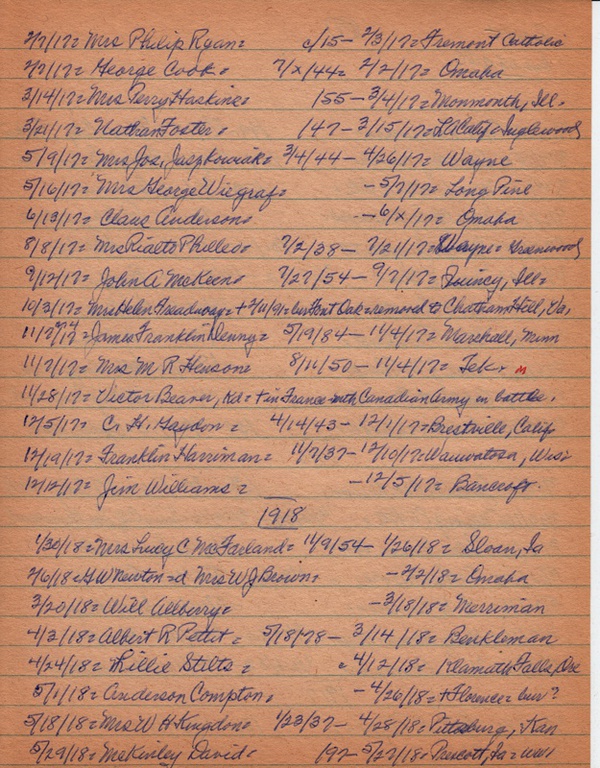 2/7/17= Mrs Philip Ryan= c/15- 2/3/17= Fremont Catholic
2/7/17= George Cook= 7/x/44= 2/2/17= Omaha
3/14/17= Mrs Perry Haskins= /55- 3/4/17= Monmonth, Ill.
3/21/17= Nathan Foster= /47- 3/15/17= Calif= Inglewood
5/9/17= Mrs Jos, Jaszkowiak= 3/4/44- 4/26/17= Wayne
5/16/17= Mrs George Wiegraf= -5/7/17= Long Pine
6/13/17= Claus Anderson= -6/x/17= Omaha
8/8/17= Mrs Rialto Philleo= 7/2/38- 7/21/17= Wayne= Greenwood
9/12/17= John A McKeen= 7/27/54- 9/7/17= Quincy, Ill=
10/3/17= Mrs Helen = + 2/11/91= bur Oak= removed to Chatham Hill, Va,
11/7/17= James Franklin Denny= 5/19/84- 11/4/17= Marshall, Minn
11/7/17= Mrs M R Henson= 8/11/50- 11/4/17= Tek. M
11/28/17= Victor Beaver, = + in France with Canadian Army in battle.
12/5/17= C. H. Gaydon= 4/14/43- 12/1/17= Calif
12/19/17= Franklin Harriman= 11/7/37- 12/10/17= Wauwatosa, Wis=
12/12/17= Jim Williams= -12/5/17= Bancroft.
1918
1/30/18= Mrs Lucy C McFarland= 11/9/54- 1/26/18= Sloan, Ia
2/6/18= G W Newton= d Mrs W J Brown= -2/2/18= Omaha
3/20/18= Will Allberry= -3/18/18= Merriman
4/3/18= Albert R Pettit= 5/18/78- 3/14/18= Benkleman
4/24/18= Lillie Stilts= c 4/12/18= Klamath Falls, Ore
5/1/18= Anderson Compton= -4/26/18= + Florence= bur?
5/18/18= Mrs W H Kingdon= 1/23/37- 4/28/18= Pittsburg, Kan
5/29/18= McKinley David= /92- 5/27/18= Prescott, Ia= WW1